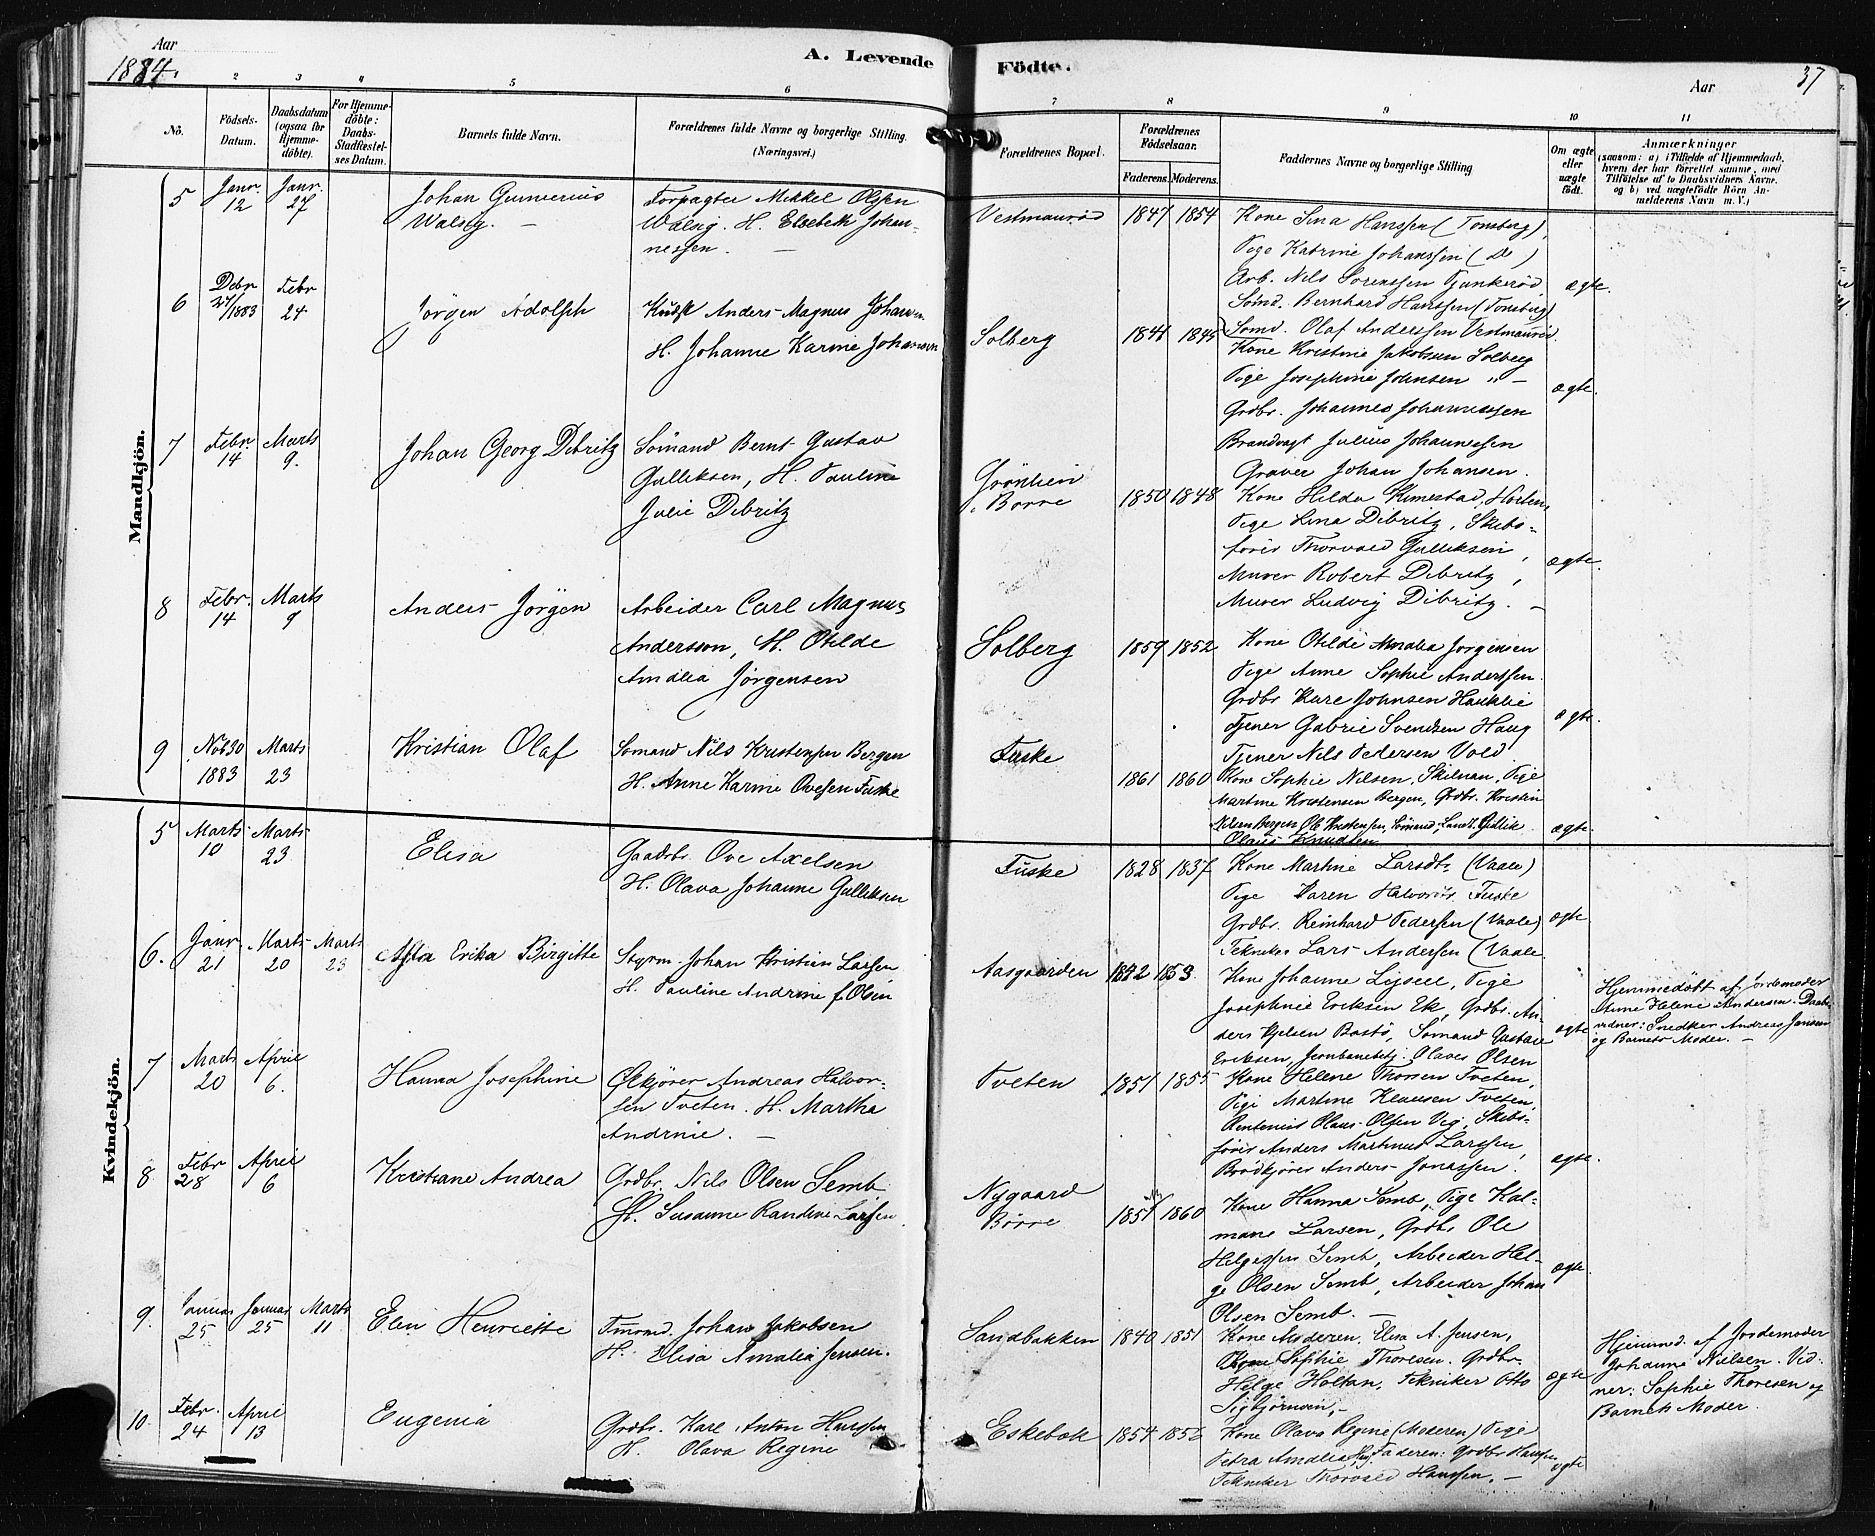 Aar
1884.
A. Levende
Födte.
Aar
37
2
3
4
5
6
7
8
9
10
11
No.
Födsels-
Datum.
Daabsdatum
(ogsaa for
Hjemme-
döbte).
For Hjemme-
döbte:
Daabs-
Stadfestel-
ses Datum.
Barnets fulde Navn.
Forældrenes fulde Navne og borgerlige Stilling.
(Næringsvei.)
Forældrenes Bopæl.
Forældrenes
Födselsaar.
Faderens.
Moderens.
Faddernes Navne og borgerlige Stilling
Om ægte
eller
uægte
födt.
Anmærkninger
(saasom: a) i Tilfælde af Hjemmedaab,
hvem der har forrettet samme, med
Tilföielse af to Daabsvidners Navne,
og b) ved uægtefödte Börn An-
melderens Navn m. V.)
Mandkjön.
5
Janr.
12
Janr.
27
Johan Gunnerius
Walseg. —
Forpagter Mikkel Olsen
Walseg. H. Elsebeth Johan-
nessen. —
Vestmauröd
1847
1854
Kone Sina Hanssen (Tonsberg),
Pige Katrine Johanssen (Do)
Arb. Nils Sorenssen Tjunkeröd
Sömd. Bernhard Hanssen (Tonsberg)
Sömd. Olaf Anderssen Vestmauröd.
ægte.
6
Debr
27/1883
Febr
24
Jörgen Adolph
Kudsk Anders Magnus Johansen
H. Johanne Karine Johansen
Solberg
1841
1845
Kone Kristine Jakobsen Solberg
Pige Josephine Johnsen " —
Grdbr. Johannes Johannessen
Brandvagt Julius Johannessen
Graver Johan Johansen.
ægte.
7
Febr
14
Marts
9.
Johan Georg Dibritz
Sömand Bernt Gustav
Gulliksen, H. Pauline
Julie Dibritz
Grönlien
Borre
1850
1848
Kone Hilda Kimestad, Horten,
Pige Lina Dibritz, Skibs-
förer Thorvald Gulliksen,
Murer Robert Dibritz,
Murer Ludvig Dibritz. —
ægte.
8
Febr.
14
Marts
9
Anders Jörgen
Arbeider Carl Magnus
Andersson, H. Otilde
Amalia Jörgensen
Solberg
1859
1852
Kone Otilde Amalia Jorgensen
Pige Anne Sophie Anderssen.
Grdbr Kare Johnsen Haukelie
Tjener Gabriel Svendsen Haug
Tjener Nils Pedersen Vold
ægte.
9
Nvb 30
1883
Marts
23
Kristian Olaf
Sömand Nils Kristensen Bergen
H. Anne Karine Ovesen Fuske
Fuske
1861
1860
Kone Sophie Nilsen, Skilnan, Pige
Martine Kristensen Bergen, Grdbr. Kristen
Nilsen Bergen, Ole Kristensen, Sömand, Landt. Gidlik
Olaus Knudsen
ægte.
Kvindekjön.
5
Marts
10
Marts
23
Elisa
Gaardbr. Ove Axelsen
H. Olava Johanne Gulliksen
Fuske
1828
1837
Kone Martine Larsdtr (Vaale)
Pige Karen Halvorss. Fuske
Grdbr. Reinhard Pedersen (Vaale)
Tekniker Lars Andersen (Vaale
ægte
6.
Janr.
21
Marts
20
Marts
23
Asta Erika Birgitte
Styrm. Johan Kristian Larsen
H. Pauline Andrine f. Olsen
Aasgaarden
1842
1853.
Kone Johanne Lysell, Pige
Josephine Eriksen Ek, Grdbr. An-
ders Kjelsen Bastö, Sömand Gustav
Eriksen, Jernbanebetj. Olaves Olsen
ægte
Hjemmedöbt af Jordemoder
Anne Helene Andersen. Daabs-
vidner: Snedker Andreas Jansen
og Barnets Moder. —
7
Marts
20
April
6.
Hanna Josephine
Ölkjörer Andreas Halvor-
sen Tveten. H. Martha
Andrine. —
Tveten
1851
1855
Kone Helene Thorsen Tveten,
Pige Martine Klausen Tveten,
Rentenist Olaus Olsen Vig, Skibs-
förer Anders Martinus Larssen,
Brödkjörer Anders Jonassen.
ægte.
8
Febr
28
April
6
Kristiane Andrea
Grdbr. Nils Olsen Semb
H. Susanne Randine Larsen.
Nygaard
Borre
1851
1860
Kone Hanna Semb, Pige Kal-
mane Larsen, Grdbr. Ole
Helgessen Semb, Arbeider Hel-
ge Olsen Semb, Arbeider Johan
Olsen Semb. —
ægte.
9.
Januar
25
Januar
25
Marts
11
Elen Henriette
Tmrmd. Johan Jakobsen
H. Elisa Amalia Jensen.
Sandbakken
1840
1851
Kone Moderen, Elisa A. Jensen,
Kone Sophie Thoresen. Grdbr.
Helge Holtan, Tekniker Otto
Sigbjörnsen, —
ægte
Hjemmed. af Jordemoder
Johanne Nielsen. Vid-
ner: Sophie Thoresen og
Barnets Moder.
10.
Febr.
24
April
13
Eugenia
Grdbr. Karl Anton Hanssen
H. Olava Regine
Eskebæk
1854
1856
Kone Olava Regine (Moderen) Pige
Petra Amalia Faderen: Grdbr Hanssen
Tekniker Thorvald Hanssen. —
ægte